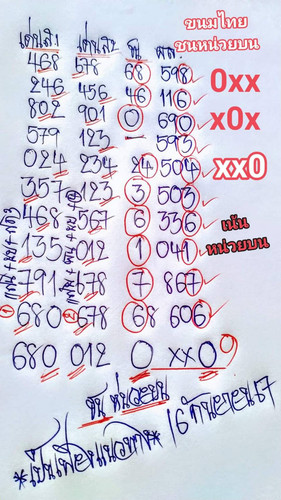 ขนมไทย
ชนหน่วยบน
0xx
x0x
xx0
เน้น
หน่วยบน
468 578 68 598
246 456 46 116
802 901 0 690
579 123 – 593
024 234 24 504
357 123 3 503
468 567 6 336
135 012 1 041
791 678 7 867
680 678 68 606
680 012 0 xx0
ชน หน่วยบน
*เป็นเพียงแนวทาง* 16 กันยายน 67